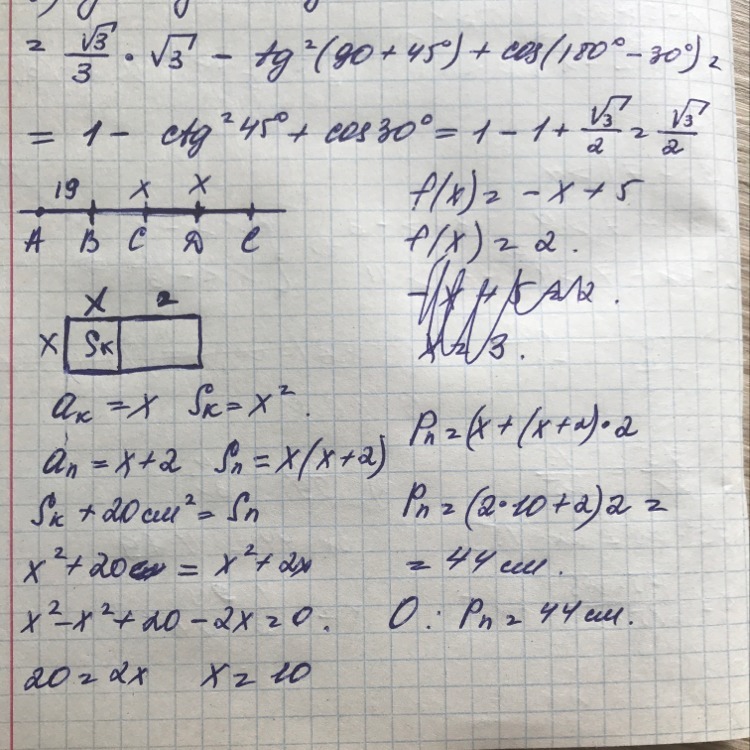 = √3/3 · √3 − tg²(90 + 45°) + cos(180° − 30°) =
= 1 − ctg²45° + cos30° = 1 − 1 + √3/2 = √3/2
19 x x
A B C D C
f(x) = −x + 5
f(x) = 2.
x 2
x Sк
aк = x Sк = x².
aп = x + 2 Sп = x(x + 2)
Sк + 20 см² = Sп
x² + 20 = x² + 2x
x² − x² + 20 − 2x = 0.
20 = 2x x = 10
Pп = (x + (x + 2) · 2
Pп = (2 · 10 + 2) 2 =
= 44 см.
O: Pп = 44 см.